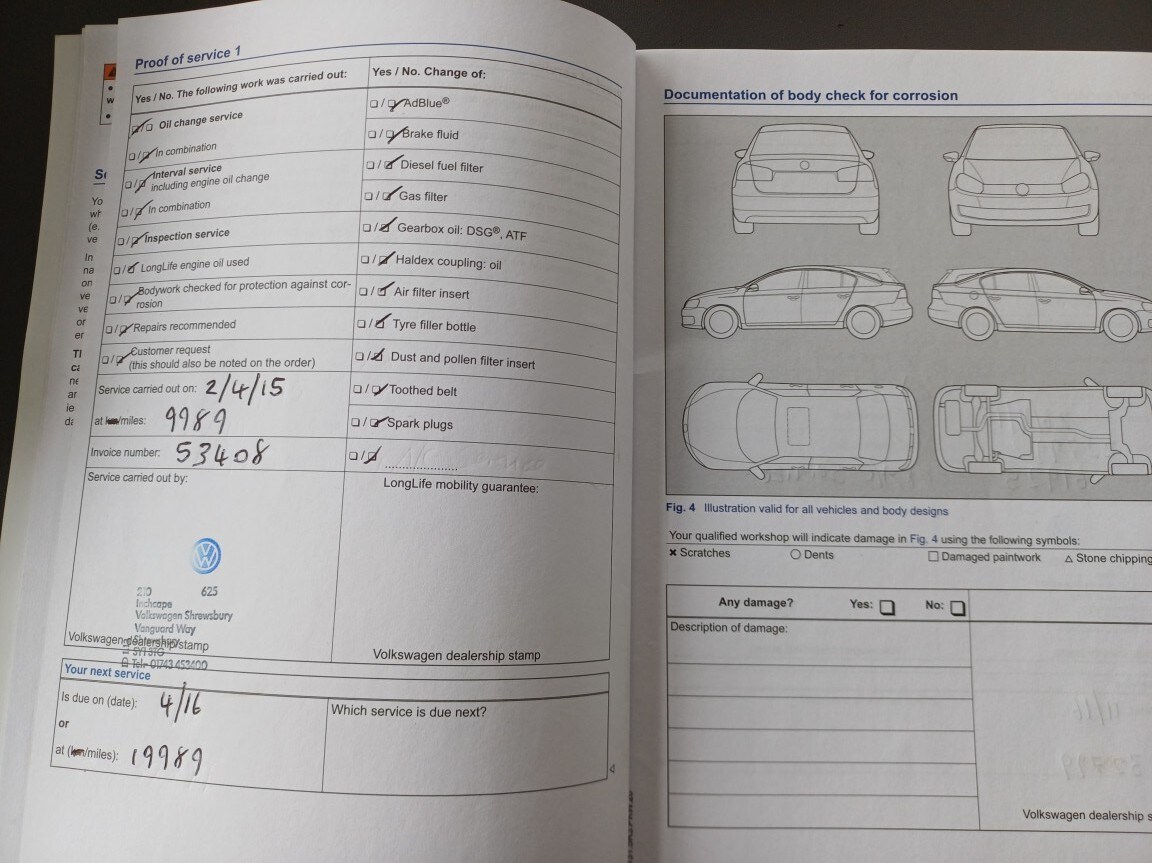 Proof of service 1
Yes / No. The following work was carried out:
☑/☐ Oil change service
☐/☑ In combination
☐/☑ Interval service
including engine oil change
☐/☑ In combination
☐/☑ Inspection service
☐/☑ LongLife engine oil used
☐/☑ Bodywork checked for protection against cor-
rosion
☐/☑ Repairs recommended
☐/☑ Customer request
(this should also be noted on the order)
Service carried out on: 2/4/15
at km/miles: 9989
Invoice number: 53408
Service carried out by:
VW
210 625
Inchcape
Volkswagen Shrewsbury
Vanguard Way
Volkswagen dealership stamp
Tel: 01743 453400
Yes / No. Change of:
☐/☑ AdBlue®
☐/☑ Brake fluid
☐/☑ Diesel fuel filter
☐/☑ Gas filter
☐/☑ Gearbox oil: DSG®, ATF
☐/☑ Haldex coupling: oil
☐/☑ Air filter insert
☐/☑ Tyre filler bottle
☐/☑ Dust and pollen filter insert
☐/☑ Toothed belt
☐/☑ Spark plugs
☐/☑ ....................
LongLife mobility guarantee:
Volkswagen dealership stamp
Your next service
Is due on (date): 4/16
or
at (km/miles): 19989
Which service is due next?
Documentation of body check for corrosion
Fig. 4 Illustration valid for all vehicles and body designs
Your qualified workshop will indicate damage in Fig. 4 using the following symbols:
× Scratches ○ Dents □ Damaged paintwork △ Stone chipping
Any damage? Yes: ☐ No: ☐
Description of damage:
Volkswagen dealership s